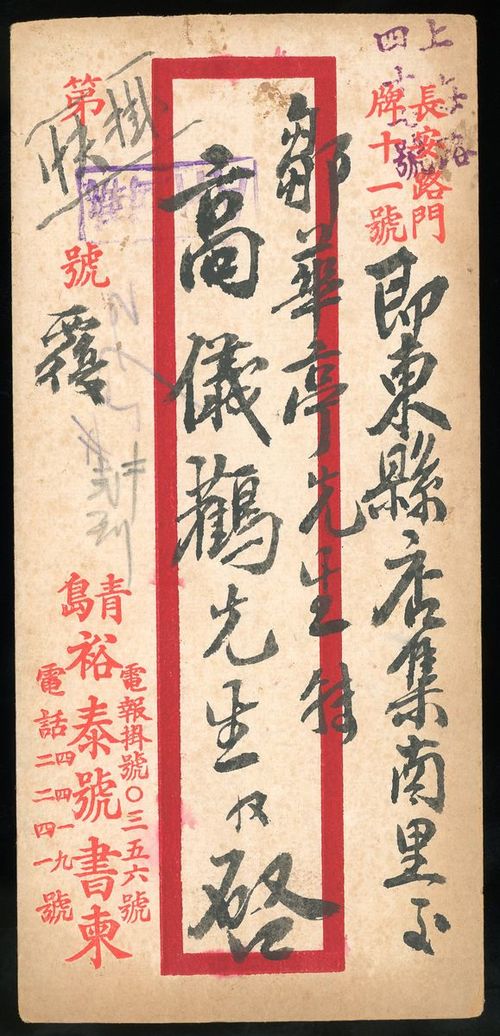 長安路門
牌十一號
即東縣店集南里玉
鄒華亭先生轉
高儀鶴先生
啓
第 號
覆
掛
快
青島
裕泰號書柬
電報掛號〇三五六號
電話二四四一九號
二二四一號